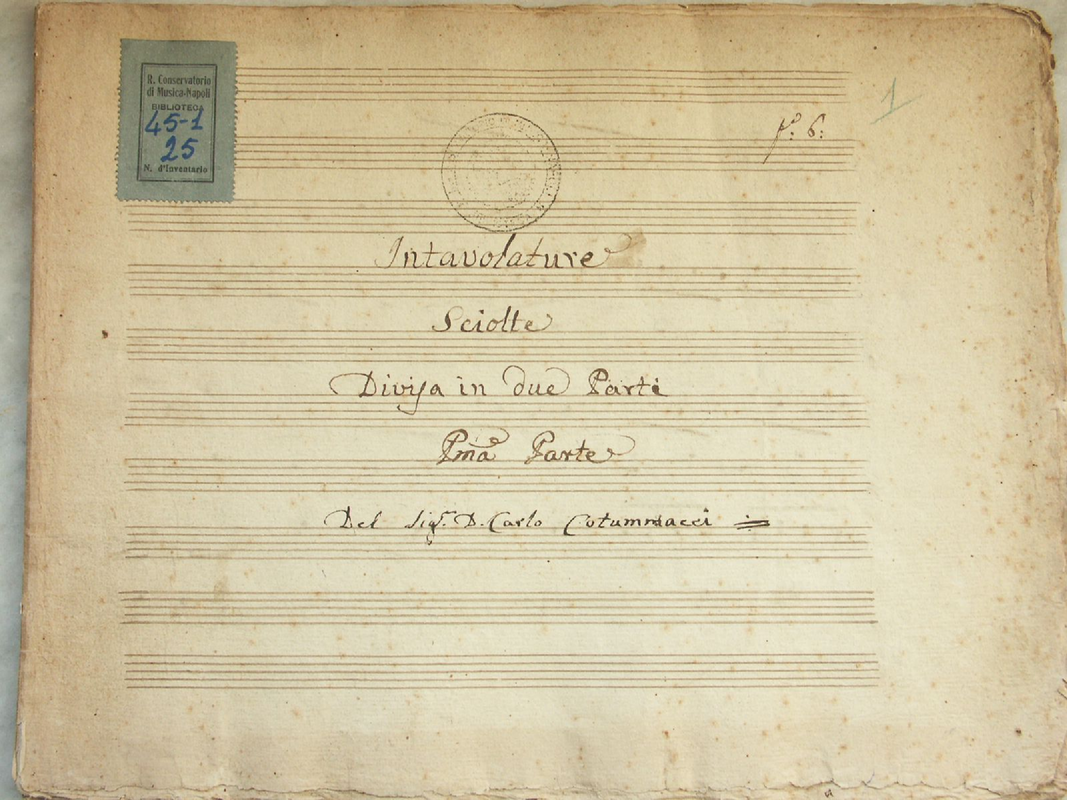 R. Conservatorio
di Musica-Napoli
BIBLIOTECA
45-1
25
N. d'Inventario
1
6:
Intavolature
Sciolte
Divisa in due Parti
Pma Parte
Del Sigr. D. Carlo Cotummacci